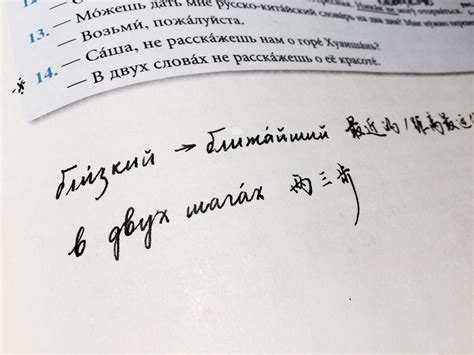 — Можешь дать мне русско-китайский словарь на два дня? Мне нужно
13. — Возьми, пожалуйста.
— Са́ша, не расска́жешь нам о горе́ Хуанша́нь?
14. — В двух слова́х не расска́жешь о её красоте́.
бли́зкий → ближа́йший 最近的/距离最近
в двух шага́х 两三步